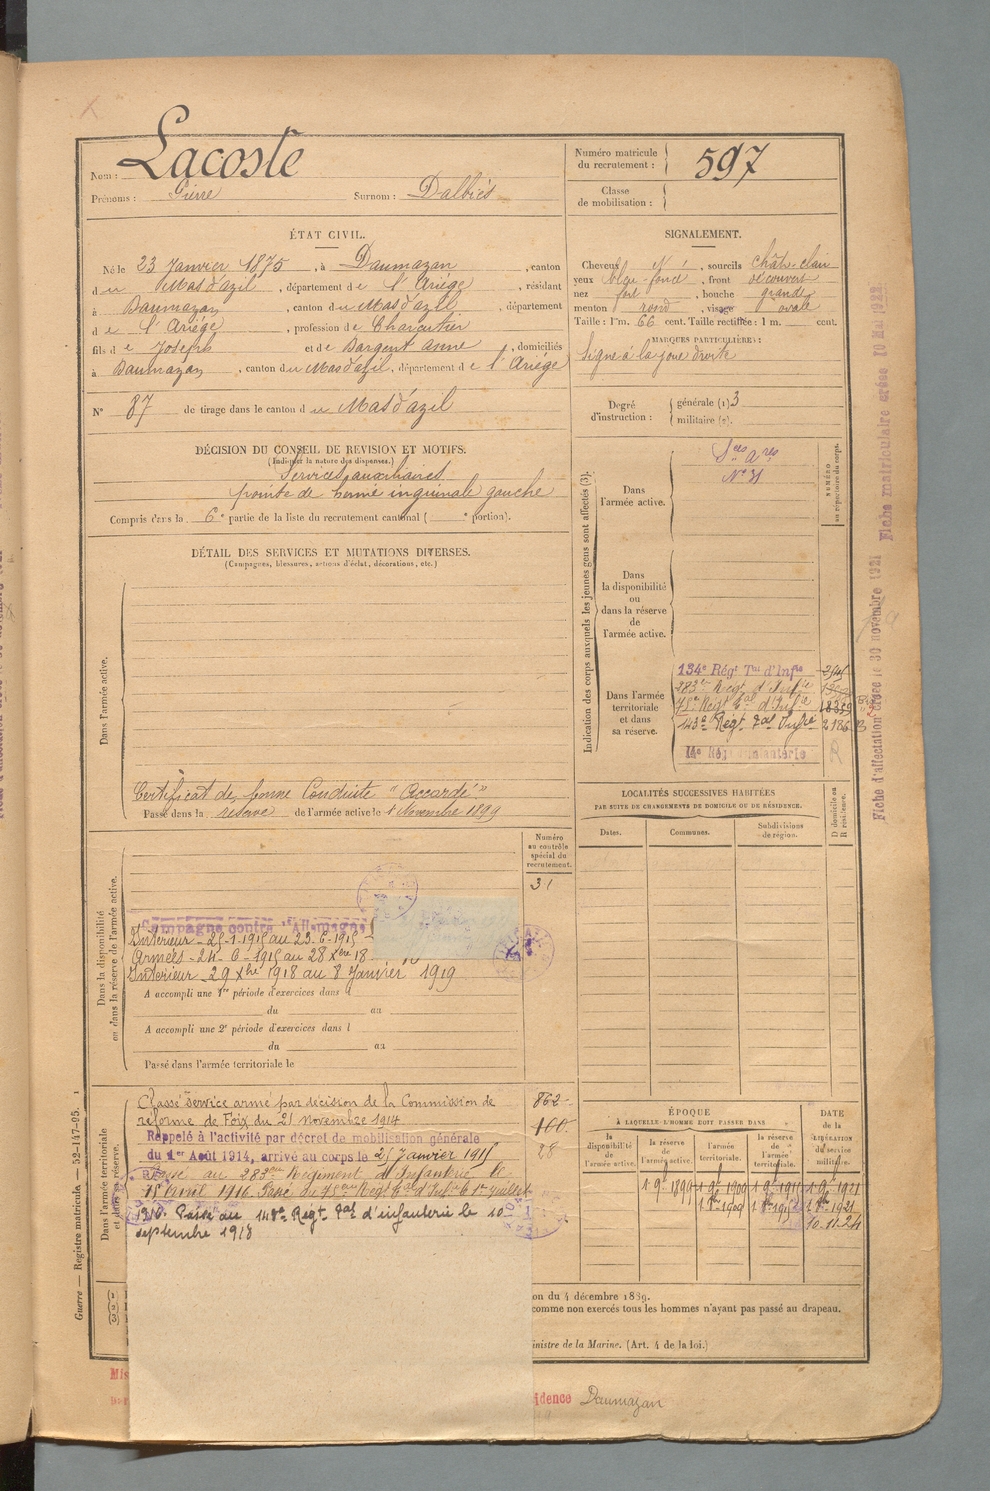 Nom : Lacoste
Prénoms : Pierre Surnom : Dalbiès
Numéro matricule du recrutement : 597
Classe de mobilisation :
ÉTAT CIVIL.
Né le 23 Janvier 1875, à Daumazan, canton
du Mas d'azil, département de l'Ariège, résidant
à Daumazan, canton du Mas d'azil, département
de l'Ariège, profession de Charcutier
fils de Joseph et de Dargent Anne, domiciliés
à Daumazan, canton du Mas d'azil, département de l'Ariège
N° 87 de tirage dans le canton du Mas d'azil
SIGNALEMENT.
Cheveux , sourcils chât-clair
yeux bleu-foncé, front découvert
nez fort, bouche grande
menton rond, visage ovale
Taille : 1 m. 66 cent. Taille rectifiée : 1 m. cent.
MARQUES PARTICULIÈRES :
Signe à la joue droite
Degré d'instruction : générale (1) 3
militaire (2).
DÉCISION DU CONSEIL DE REVISION ET MOTIFS.
(Indiquer la nature des dispenses.)
Services auxiliaires
pointe de hernie inguinale gauche
Compris dans la 6e partie de la liste du recrutement cantonal ( e portion).
DÉTAIL DES SERVICES ET MUTATIONS DIVERSES.
(Campagnes, blessures, actions d'éclat, décorations, etc.)
Dans l'armée active.
Certificat de bonne Conduite "Accordé"
Passé dans la réserve de l'armée active le 1 Novembre 1899
Indication des corps auxquels les jeunes gens sont affectés (3).
NUMÉRO au répertoire du corps.
Dans l'armée active.
Sces Ares
N° 31
Dans la disponibilité ou dans la réserve de l'armée active.
Dans l'armée territoriale et dans sa réserve.
134e Régt Tal d'Infie
283e Regt d'Infie
78e Regt Tal d'Infie 18359
143e Regt Tal Infie 2186
LOCALITÉS SUCCESSIVES HABITÉES
PAR SUITE DE CHANGEMENTS DE DOMICILE OU DE RÉSIDENCE.
Dates. Communes. Subdivisions de région.
D domicile ou R résidence.
Numéro au contrôle spécial du recrutement.
31
Dans la disponibilité ou dans la réserve de l'armée active.
Campagne contre l'Allemagne
Intérieur - 25-1-1915 au 23-6-1915
Armées - 24-6-1915 au 28 Xbre 18
Intérieur - 29 Xbre 1918 au 8 Janvier 1919
A accompli une 1re période d'exercices dans l
du au
A accompli une 2e période d'exercices dans l
du au
Passé dans l'armée territoriale le
Dans l'armée territoriale et dans sa réserve.
Classé service armé par décision de la Commission de
réforme de Foix du 21 novembre 1914
Rappelé à l'activité par décret de mobilisation générale
du 1er Août 1914, arrivé au corps le 25 Janvier 1915
Passé au 283e Régiment d'Infanterie le
15 Avril 1916. Passé au 78e Regt Tal d'Infie le 1er juillet
1916. Passé au 143e Regt Tal d'infanterie le 10
septembre 1918
862
160
28
ÉPOQUE
À LAQUELLE L'HOMME DOIT PASSER DANS
la disponibilité de l'armée active.
la réserve de l'armée active.
l'armée territoriale.
la réserve de l'armée territoriale.
DATE de la LIBÉRATION du service militaire.
10-11-24
on du 4 décembre 1889.
comme non exercés tous les hommes n'ayant pas passé au drapeau.
inistre de la Marine. (Art. 4 de la loi.)
idence Daumazan
Guerre — Registre matricule. — 52-147-95.
Fiche d'affectation créée le 30 novembre 1921
Fiche matriculaire créée 10 Mai 1922